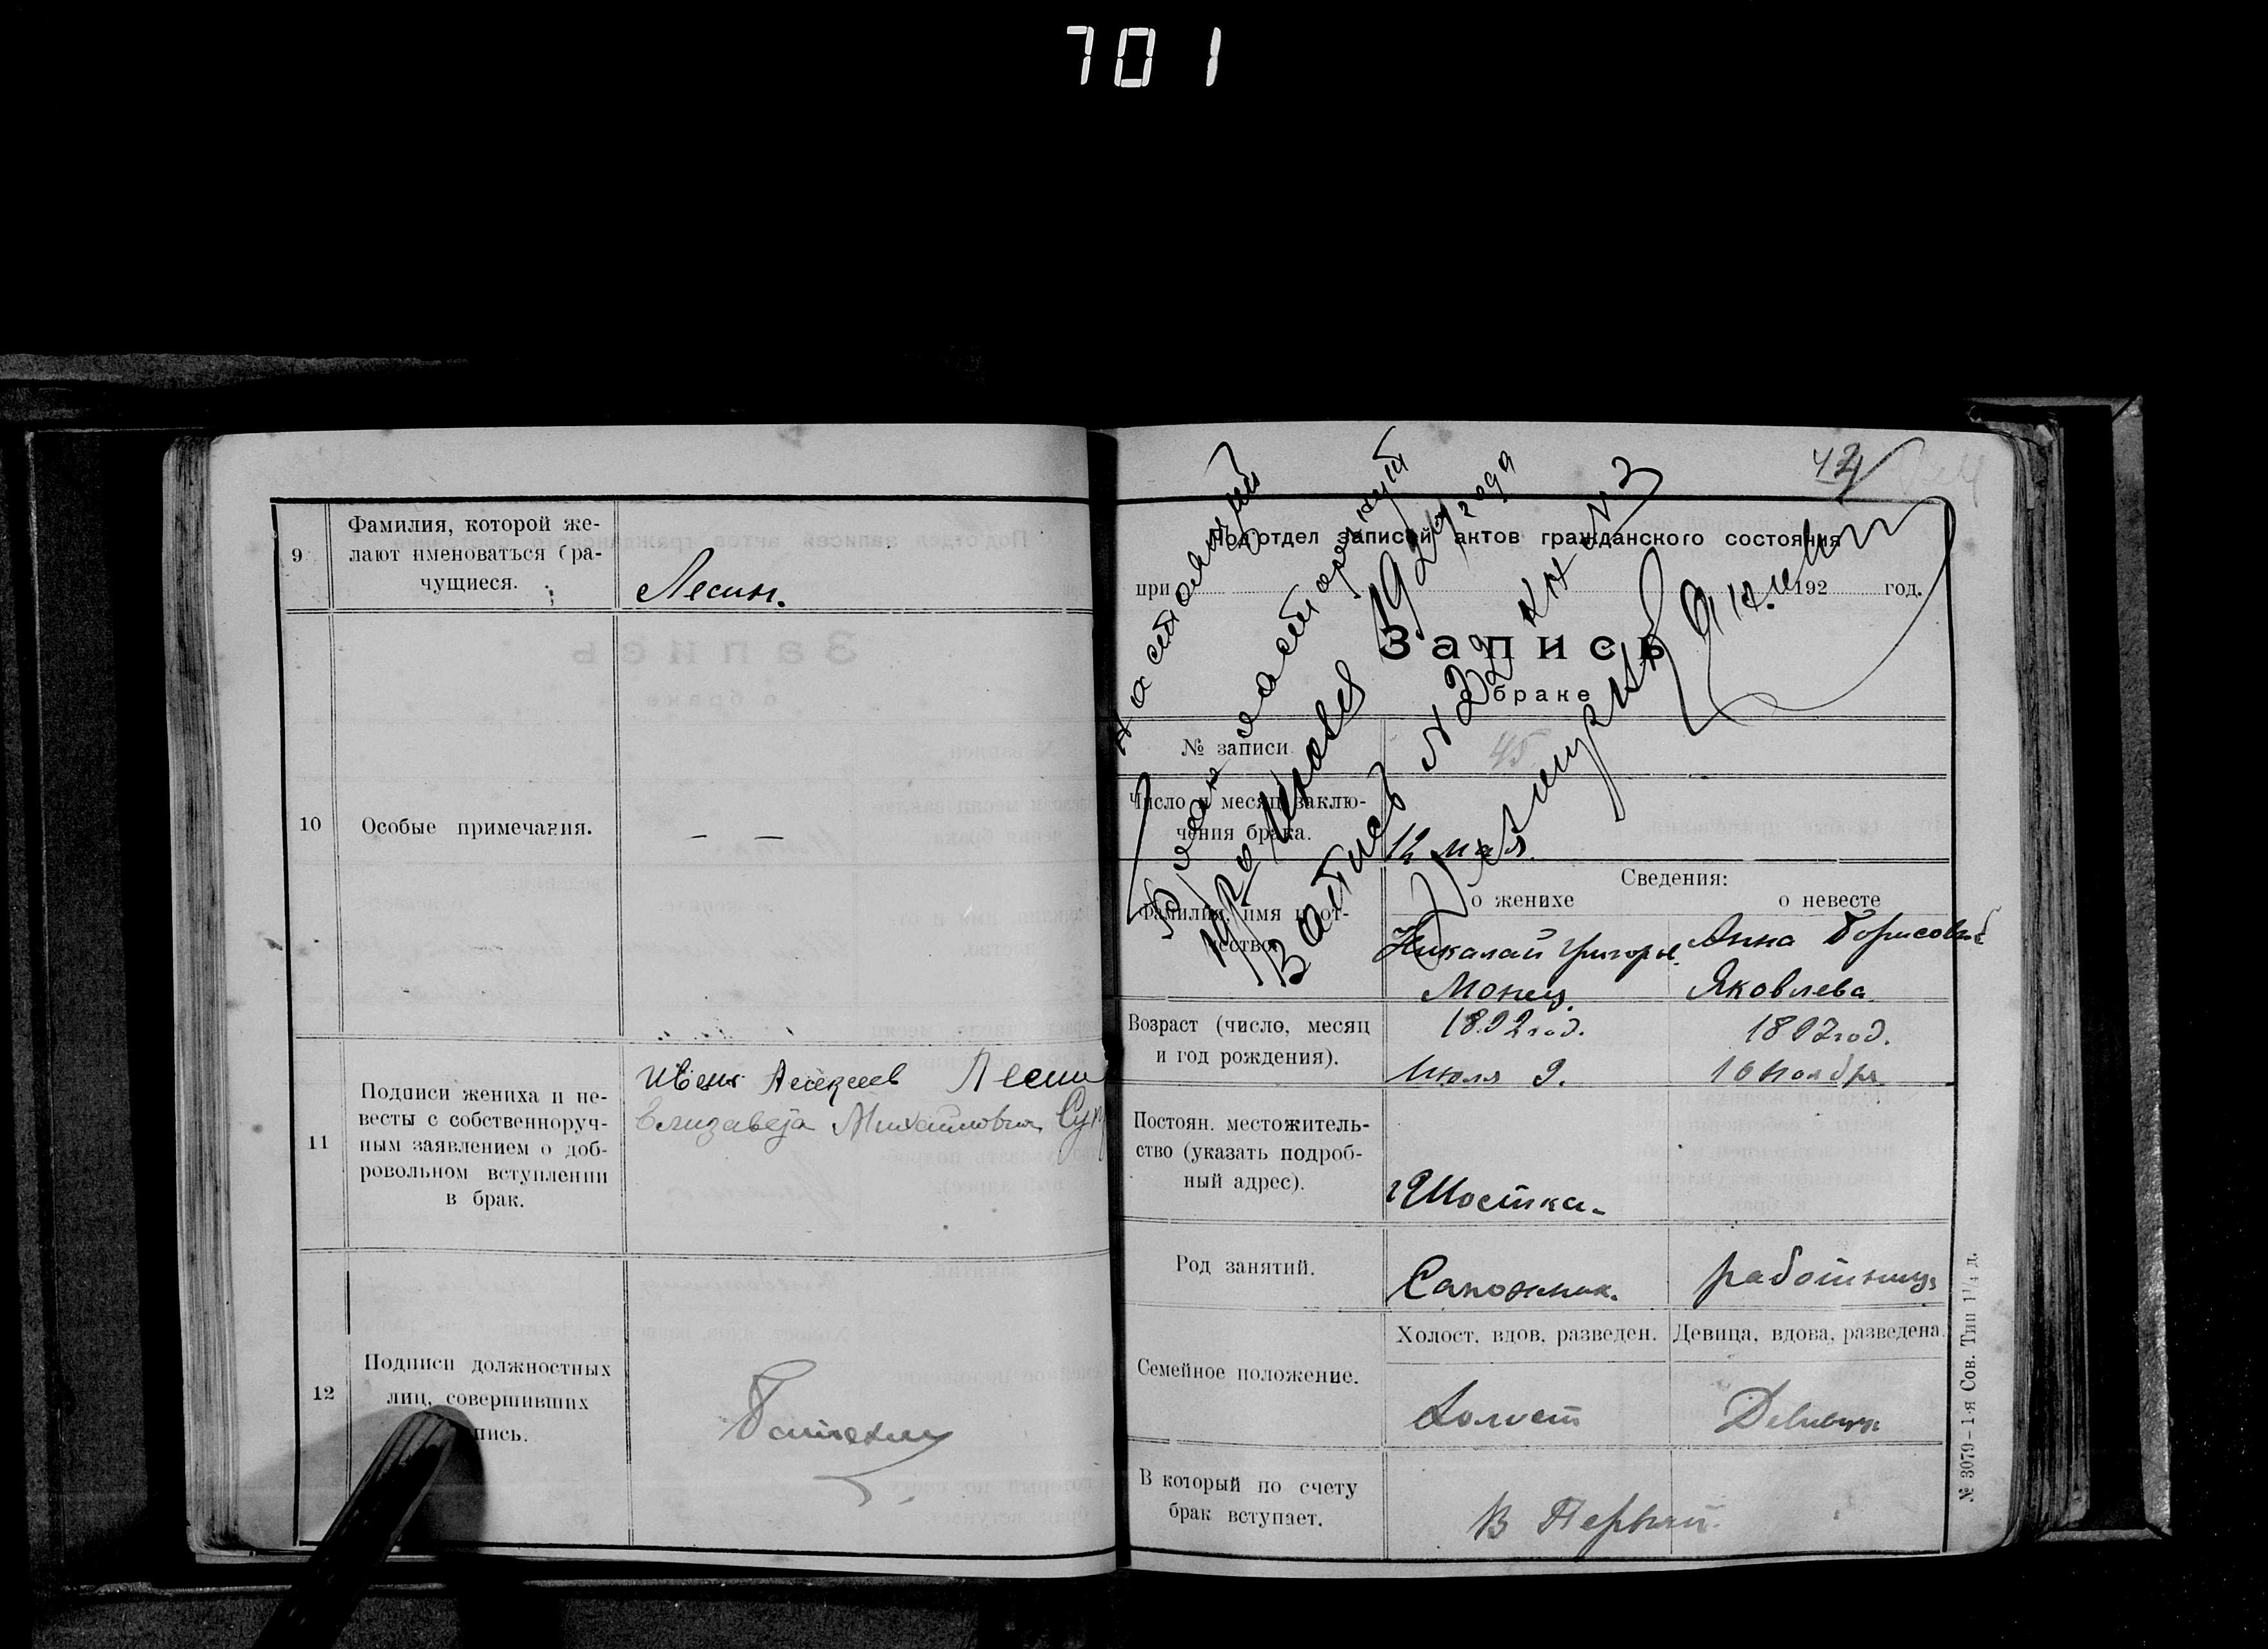 701
9
Фамилия, которой же-
лают именоваться бра-
чущиеся.
Лесин.
10
Особые примечания.
— —
11
Подписи жениха и не-
весты с собственноруч-
ным заявлением о доб-
ровольном вступлении
в брак.
Иван Алексеев Лесин
Елизавета Михайловна
12
Подписи должностных
лиц, совершивших
пись.
42
Настоящий
брак расторгнут
1924 года
Запись № 32 кн № 3
Подотдел записей актов гражданского состояния
при 192 год.
Запись
о браке
№ записи
45
Число и месяц заклю-
чения брака.
12 мая.
Сведения:
о женихе
о невесте
Фамилия, имя и от-
чество.
Николай Григорь.
Анна Борисовна
Яковлева
Возраст (число, месяц
и год рождения).
1892 год.
Июля 9.
1897 год.
16 ноября
Постоян. местожитель-
ство (указать подроб-
ный адрес).
г Шостка.
Род занятий.
Сапожник.
работница
Семейное положение.
Холост, вдов, разведен.
Девица, вдова, разведена.
Холост
Девица
В который по счету
брак вступает.
В Первый
№ 3079–1-я Сов. Тип 1¹/₄ д.